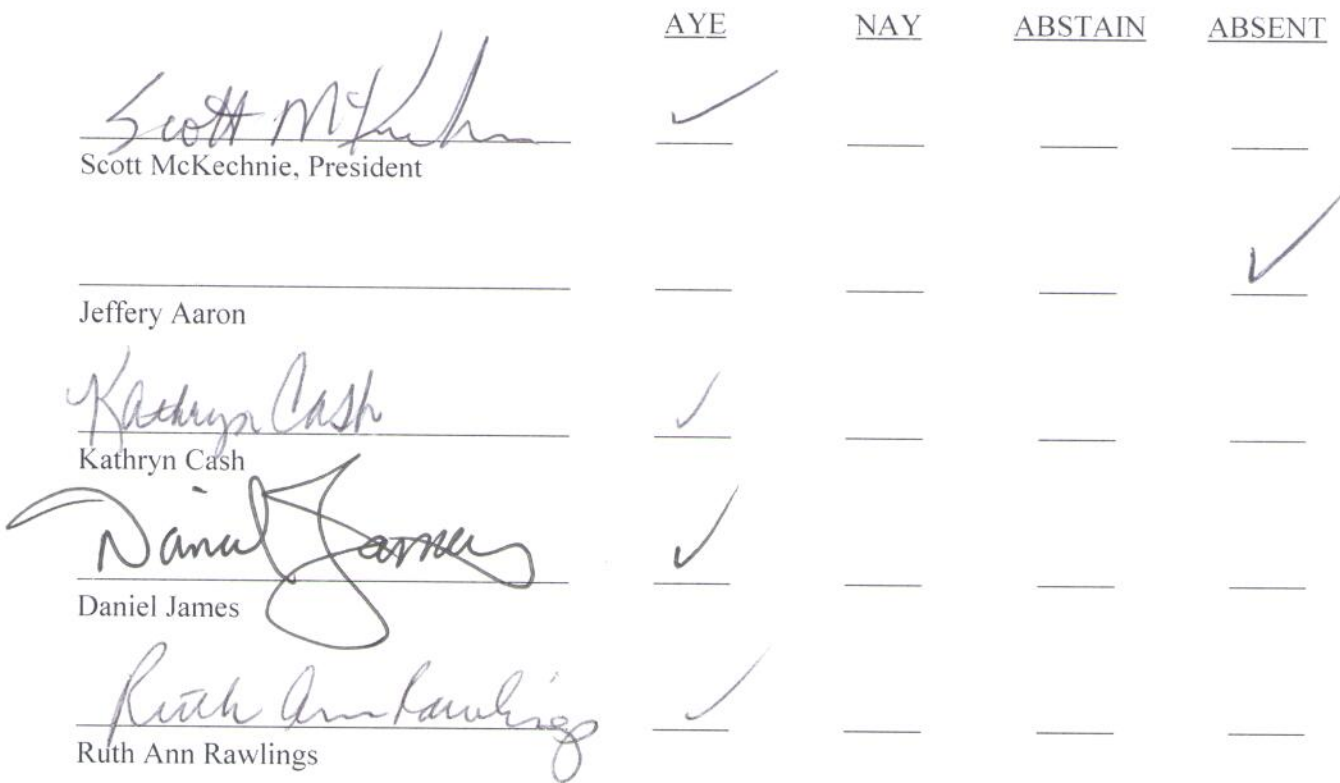 AYE NAY ABSTAIN ABSENT
Scott McKechnie ✓
Scott McKechnie, President
✓
Jeffery Aaron
Kathryn Cash ✓
Kathryn Cash
Daniel James ✓
Daniel James
Ruth Ann Rawlings ✓
Ruth Ann Rawlings